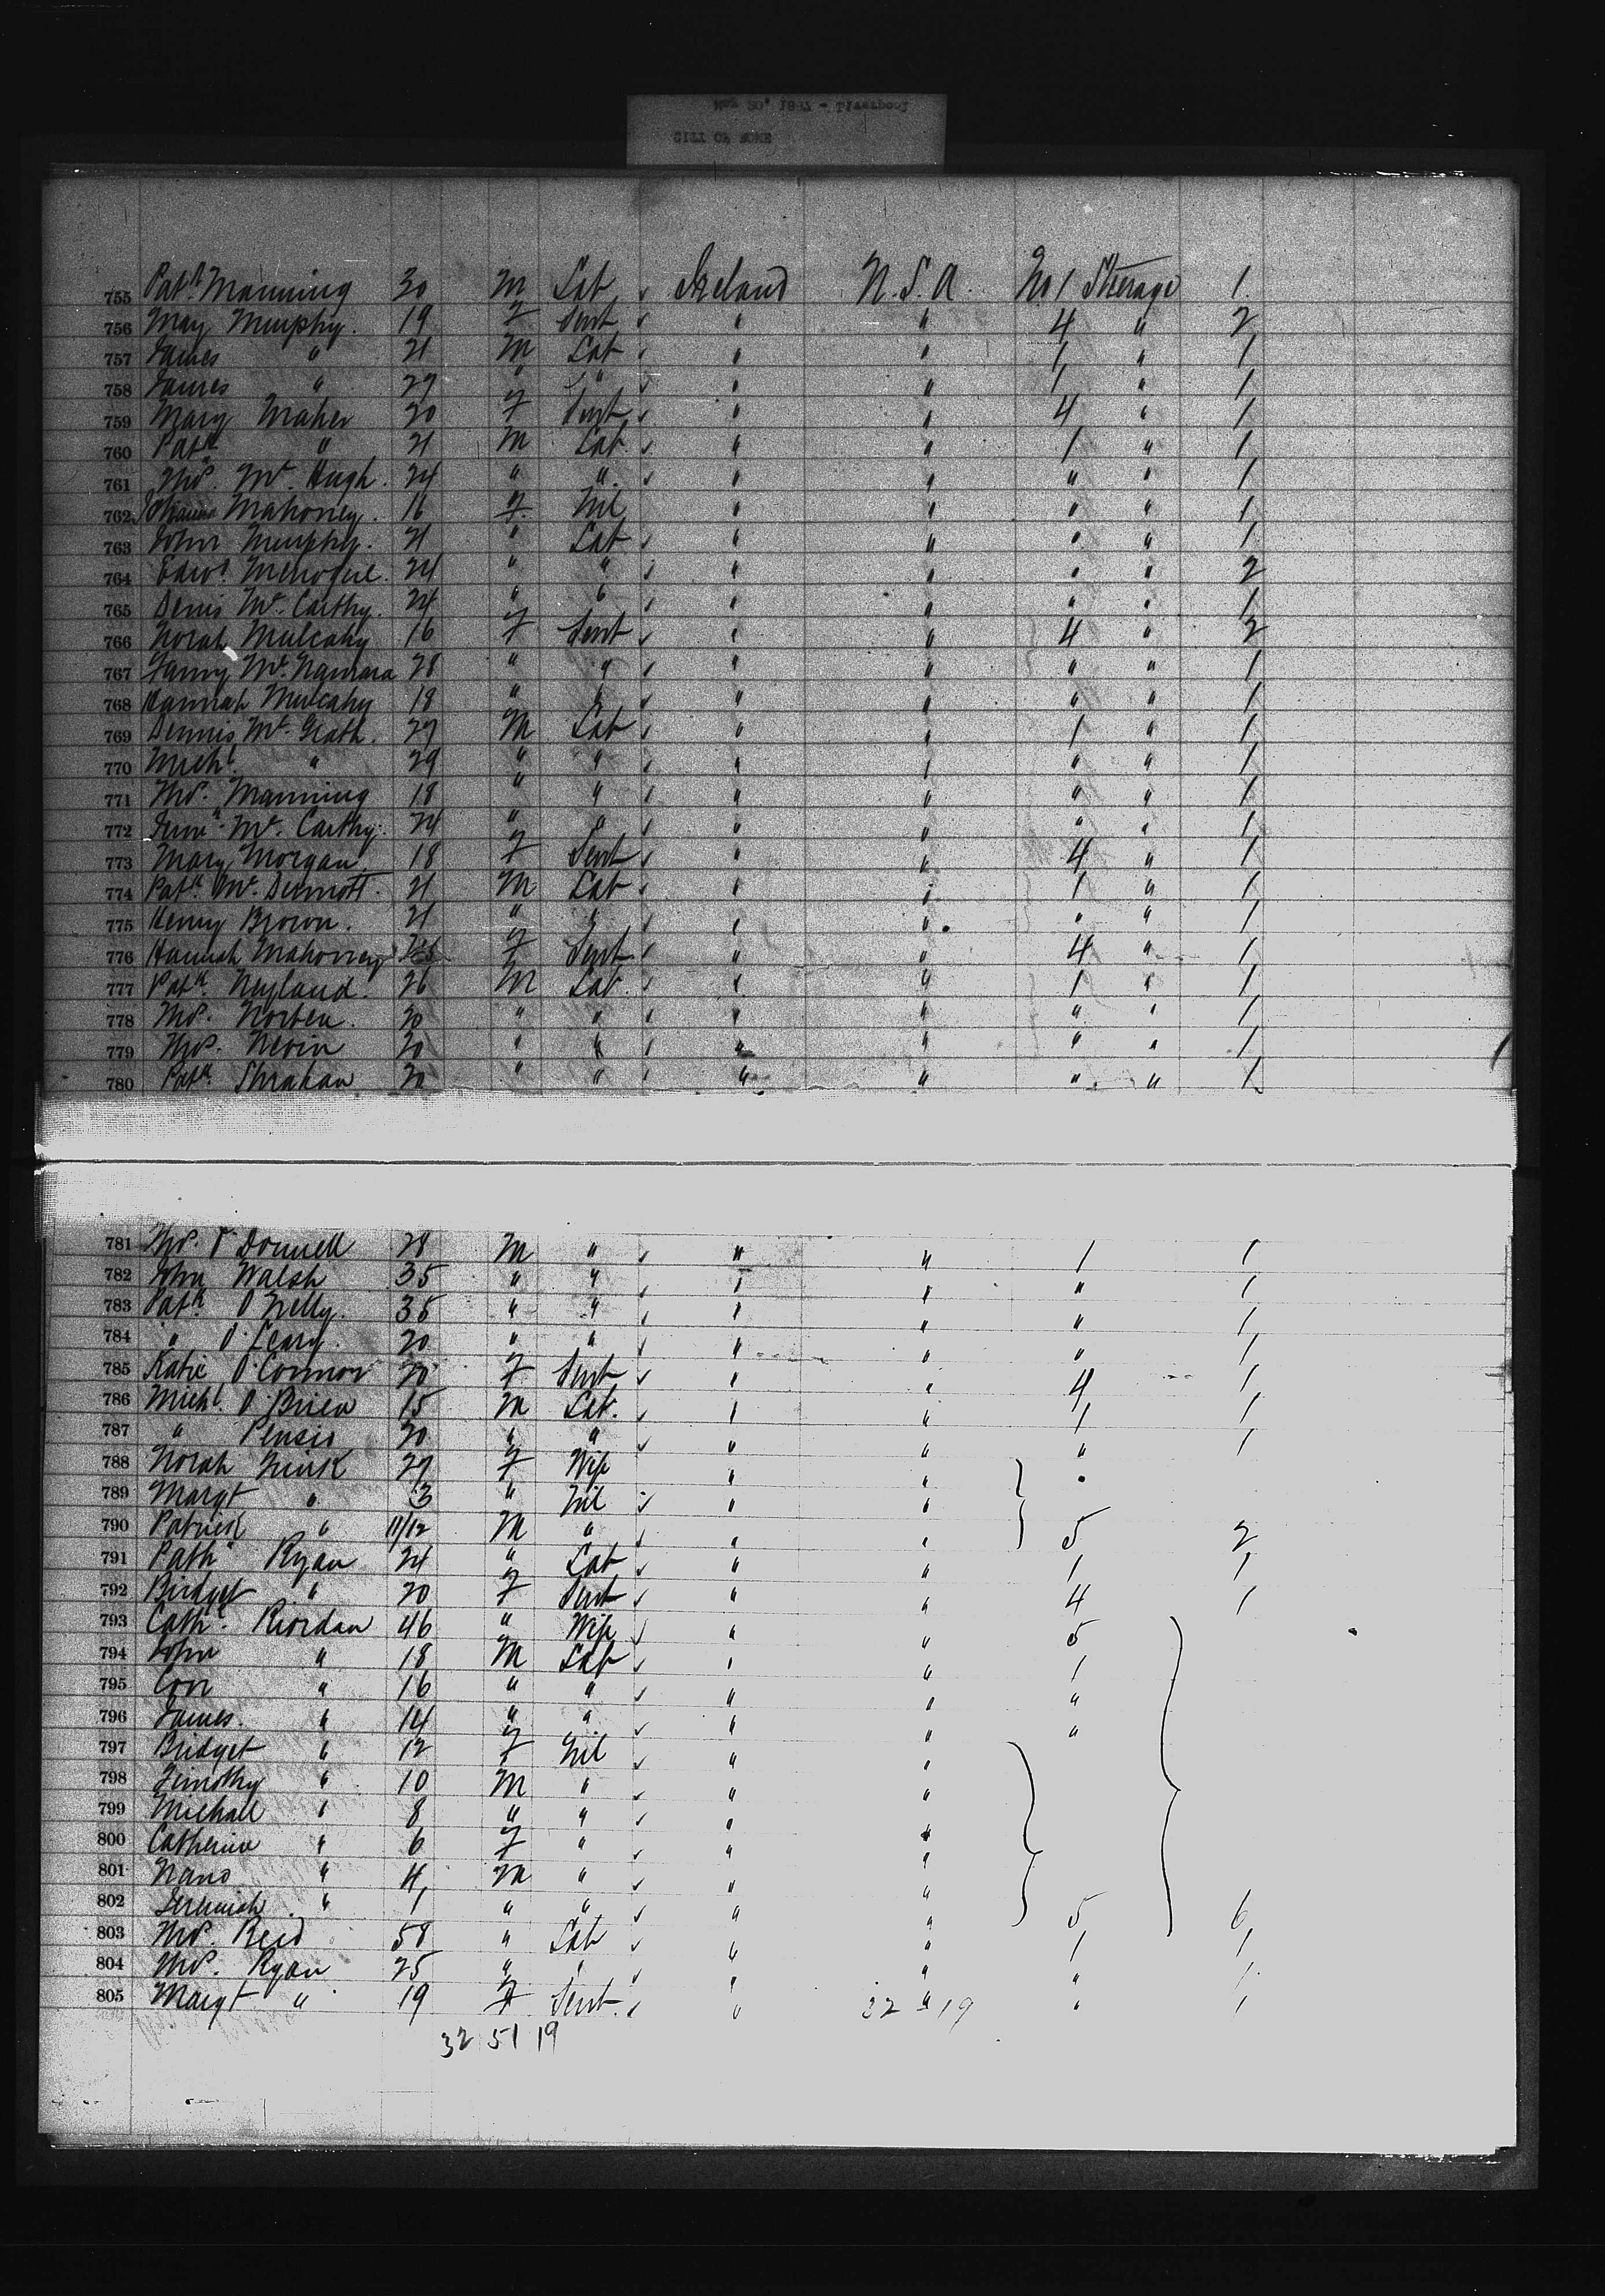 Mar 30' 1887 - Liverpool
CITY OF ROME
755 Patk Manning 30 M Lab Ireland U.S.A. No 1 Steerage 1
756 May Murphy. 19 F Servt " " 4 " 2
757 James " 21 M Lab " " 1 " 1
758 James " 27 " " " " 1 " 1
759 Mary Maher 20 F Servt " " 4 " 1
760 Patk " 21 M Lab. " " 1 " 1
761 Thos. Mc. Hugh. 24 " " " " " " 1
762 Johanna Mahoney. 16 F Nil " " " " 1
763 John Murphy. 21 " Lab " " " " 1
764 Edwd. 24 " " " " " " 2
765 Denis Mc. Carthy. 24 " " " " " " 1
766 Norah Mulcahy 16 F Servt " " 4 " 2
767 Fanny Mc. Namara 28 " " " " " " 1
768 Hannah Mulcahy 18 " " " " " " 1
769 Dennis Mc. Grath. 27 M Lab " " 1 " 1
770 Michl. " 29 " " " " " " 1
771 Thos. Manning 18 " " " " " " 1
772 Mc. Carthy. 24 " " " " " " 1
773 Mary Morgan 18 F Servt " " 4 " 1
774 Patk Mc. Dermott. 21 M Lab " " 1 " 1
775 Henry Brown. 21 " " " " " " 1
776 Hannah Mahoney F Servt " " 4 " 1
777 Patk. Nyland. 26 M Lab. " " 1 " 1
778 Thos. Norten. 20 " " " " " " 1
779 Thos. Nevin 20 " " " " " " 1
780 Patk. Shrahan 20 " " " " " " 1
781 Thos. O'Donnell 28 M " " " 1 1
782 John Walsh 35 " " " " " 1
783 Patk. O'Nelly. 35 " " " " " 1
784 " O'Leary. 20 " " " " " 1
785 Katie O'Connor 20 F Servt " " 4 1
786 Michl. O'Brien 15 M Lab. " " 1 1
787 " 20 " " " " " 1
788 Norah 27 F Wife " " "
789 Margt " 3 " Nil " "
790 Patrick " 11/12 M " " " 5 2
791 Pathk Ryan 24 " Lab " " 1 1
792 Bridget " 20 F Servt " " 4 1
793 Cathe. Riordan 46 " Wife " " 5
794 John " 18 M Lab " " 1
795 Con " 16 " " " " "
796 James. " 14 " " " " "
797 Bridget " 12 F Nil " "
798 Timothy " 10 M " " "
799 Michall " 8 " " " "
800 Catherine " 6 F " " "
801 Nano " 4 M " " "
802 Jeremiah " 1 " " " " 5 6
803 Thos. Reid 58 " Lab " " 1 1
804 Thos. Ryan 25 " " " " " 1
805 Margt " 19 F Servt. " " " 1
32 19
32 51 19